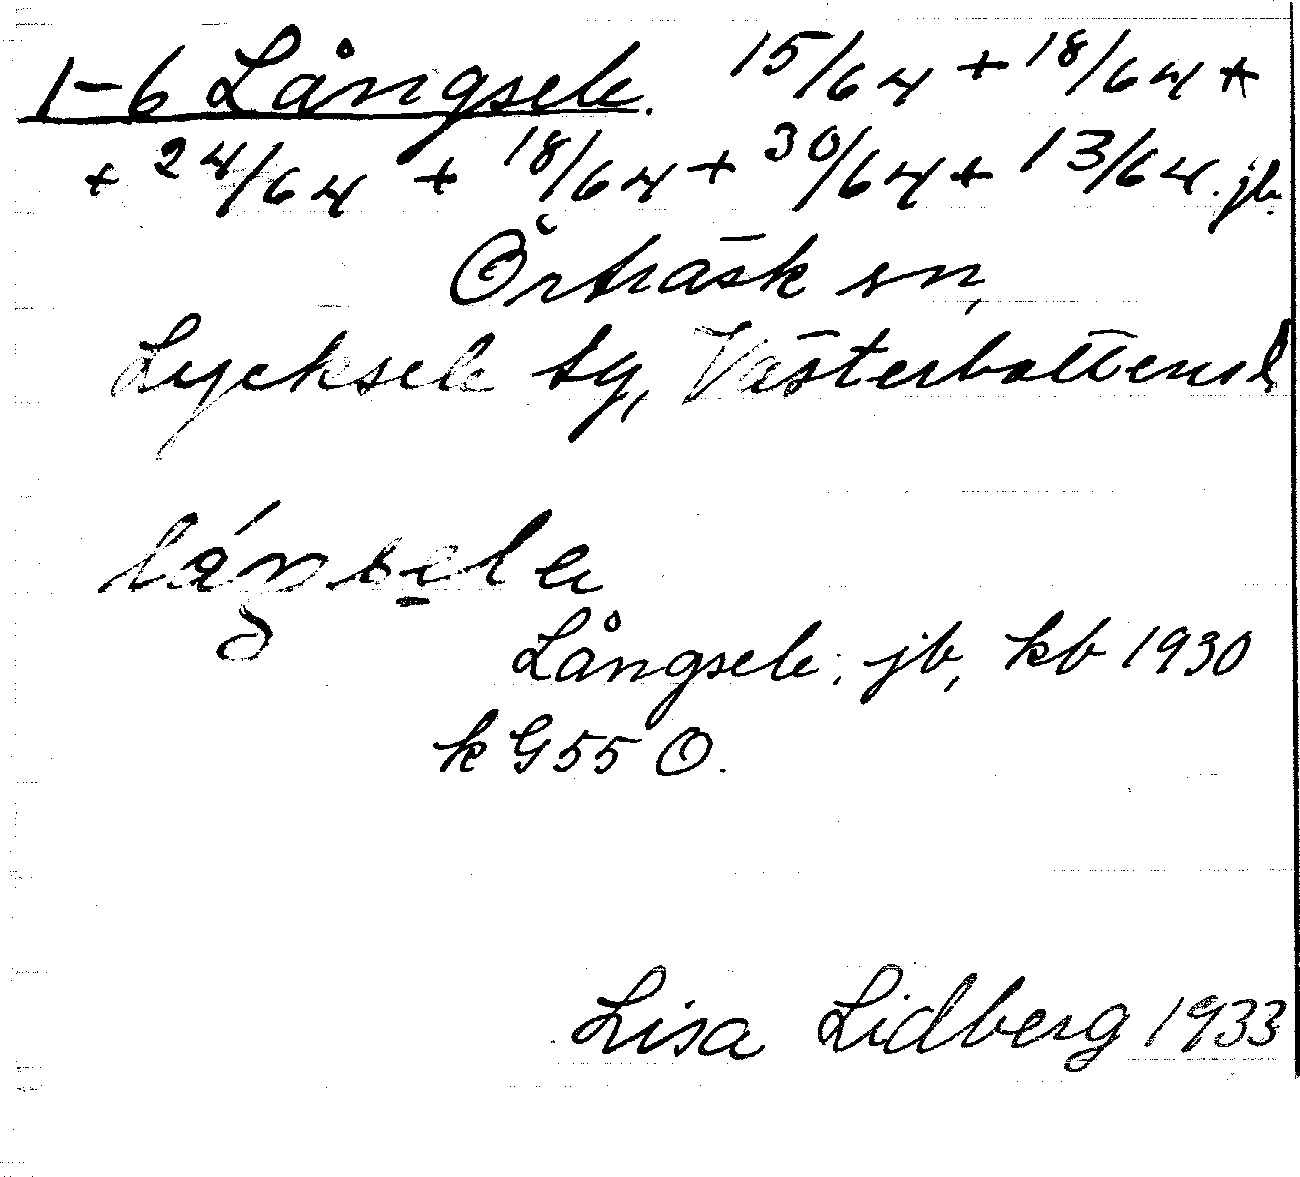 1-6 Långsele. 15/64 + 18/64 +
+ 24/64 + 18/64 + 30/64 + 13/64. jb.
Örträsk sn,
Lycksele tg, Västerbottens l
Långsele, jb, kb 1930
k G55 O.
Lisa Lidberg 1933